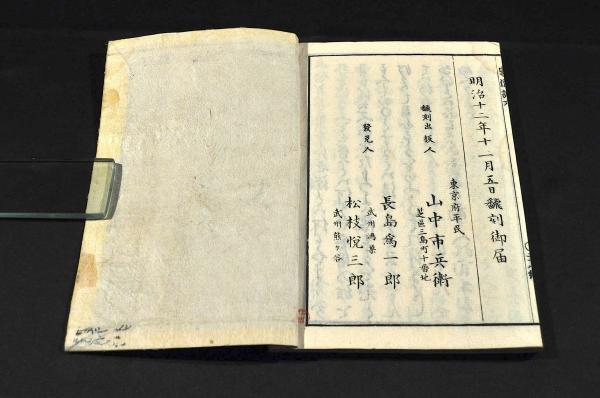 明治十二年十一月五日飜刻御届
東京府平民
飜刻出版人
山中市兵衛
芝區三島町十番地
發兌人
長島為一郎
武州鴻巣
松枝悦三郎
武州熊ヶ谷